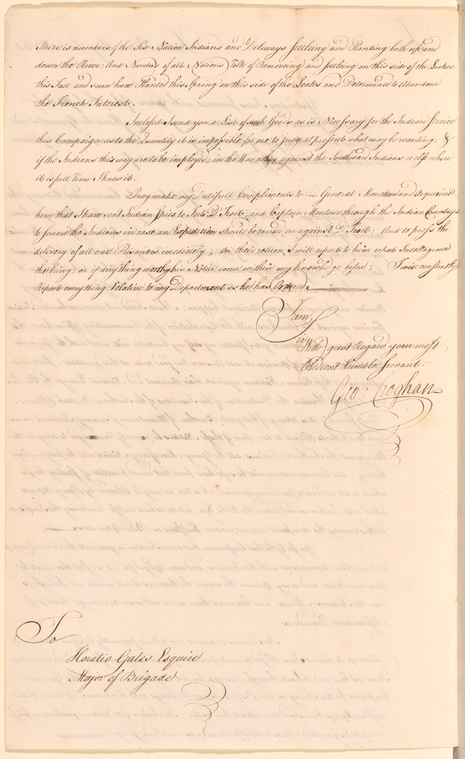 There is members of the Six Nation Indians and Delaways settling and Planting both up and
down the River. And Number of all Nations Talk of Removeing and settling on this side of the Lakes
this Fall and some have Planted this Spring on this side of the Lakes and Determined to abandon
the French Interest.
Inclosed I send you a List of such Goods as is Necessary for the Indian Service
this Campaign as to the Quantity it is impossible for me to Judge at present what may be wanting &
if the Indians this way are to be employed in the War against the Southern Indians or else where
it is full time I knew it.
Pray make my Dutifull Compliments to General Monckton and Acquaint
him that I have sent Indian Spies to Fort D Troit and Captain Montour through the Indian Countrys
to sound the Indians in case an Expedition should be carried on against D Troit And to press the
delivery of all our Prisoners imediately; on their return I will report to him what Intelligence
they bring, or if anything worthy his Notice comes within my knowledge before; I will constantly
Report everything Relative to my Department as he has Ordered
I am,
Sir
With great Regard your most
Obedient Humble Servant
Geo: Croghan
To
Horatio Gates Esquire
Major of Brigade